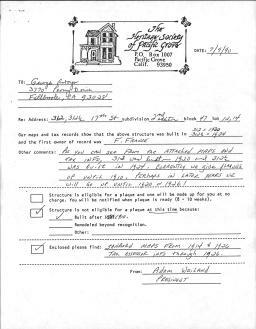 The
Heritage Society
of Pacific Grove
P.O. Box 1007
Pacific Grove
Calif. 93950
DATE: 7/9/90
TO: George
3770
Fallbrook, CA 92028
Re: Address: 312, 314½ 17th St subdivision 2nd block 47 lot 12,14
Our maps and tax records show that the above structure was built in 312 = 1920
and the first owner of record was F. France
Other comments: As you can see from the attached maps and
tax info, 312 was built in 1920 and 314½
was built in 1924. Currently we give plaques
up until 1910. Perhaps in later years we
will go up until 1920 or 1926!
Structure is eligible for a plaque and one will be made up for you at no
charge. You will be notified when plaque is ready (8 - 10 weeks).
Structure is not eligible for a plaque at this time because:
Built after
Remodeled beyond recognition.
Other:
Enclosed please find: Sanborn maps from 1914 & 1926
Tax assessor info through 1926.
From: Adam Weiland
President